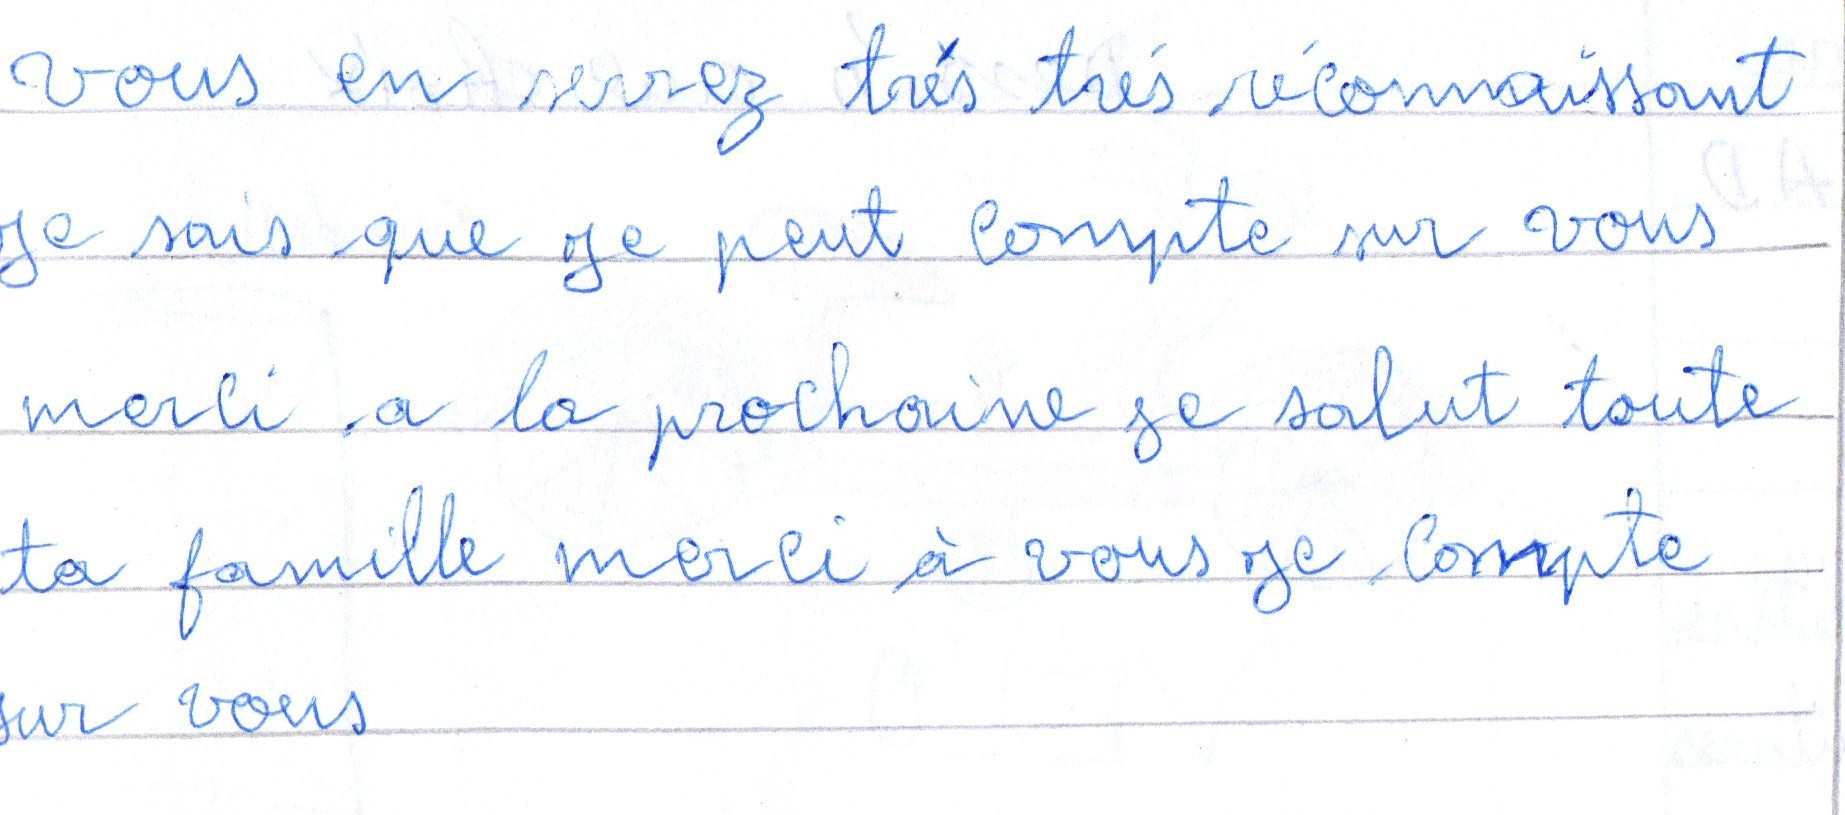 vous en serrez trés trés réconnaissant
je sais que je peut compte sur vous
merci a la prochaine je salut toute
ta famille merci à vous je compte
sur vous